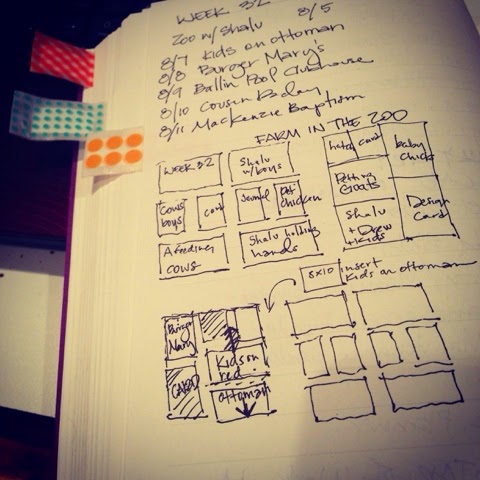 WEEK 32
ZOO w/Shalu 8/5
8/7 Kids on ottoman
8/8 Burger Mary's
8/9 Ballin Pool Clubhouse
8/10 Cousin Bday
8/11 MacKenzie Baptism
FARM IN THE ZOO
WEEK 32
Shalu
w/boys
hatch
card
baby
chick
Cows
boys
card
pet
chicken
Petting
Goats
A feeding
cows
Shalu holding
hands
Shalu
+ Drew
+ Kids
Design
Card
8x10 insert
Kids on ottoman
Burger
Mary
Kids on
red
ottoman
CARD